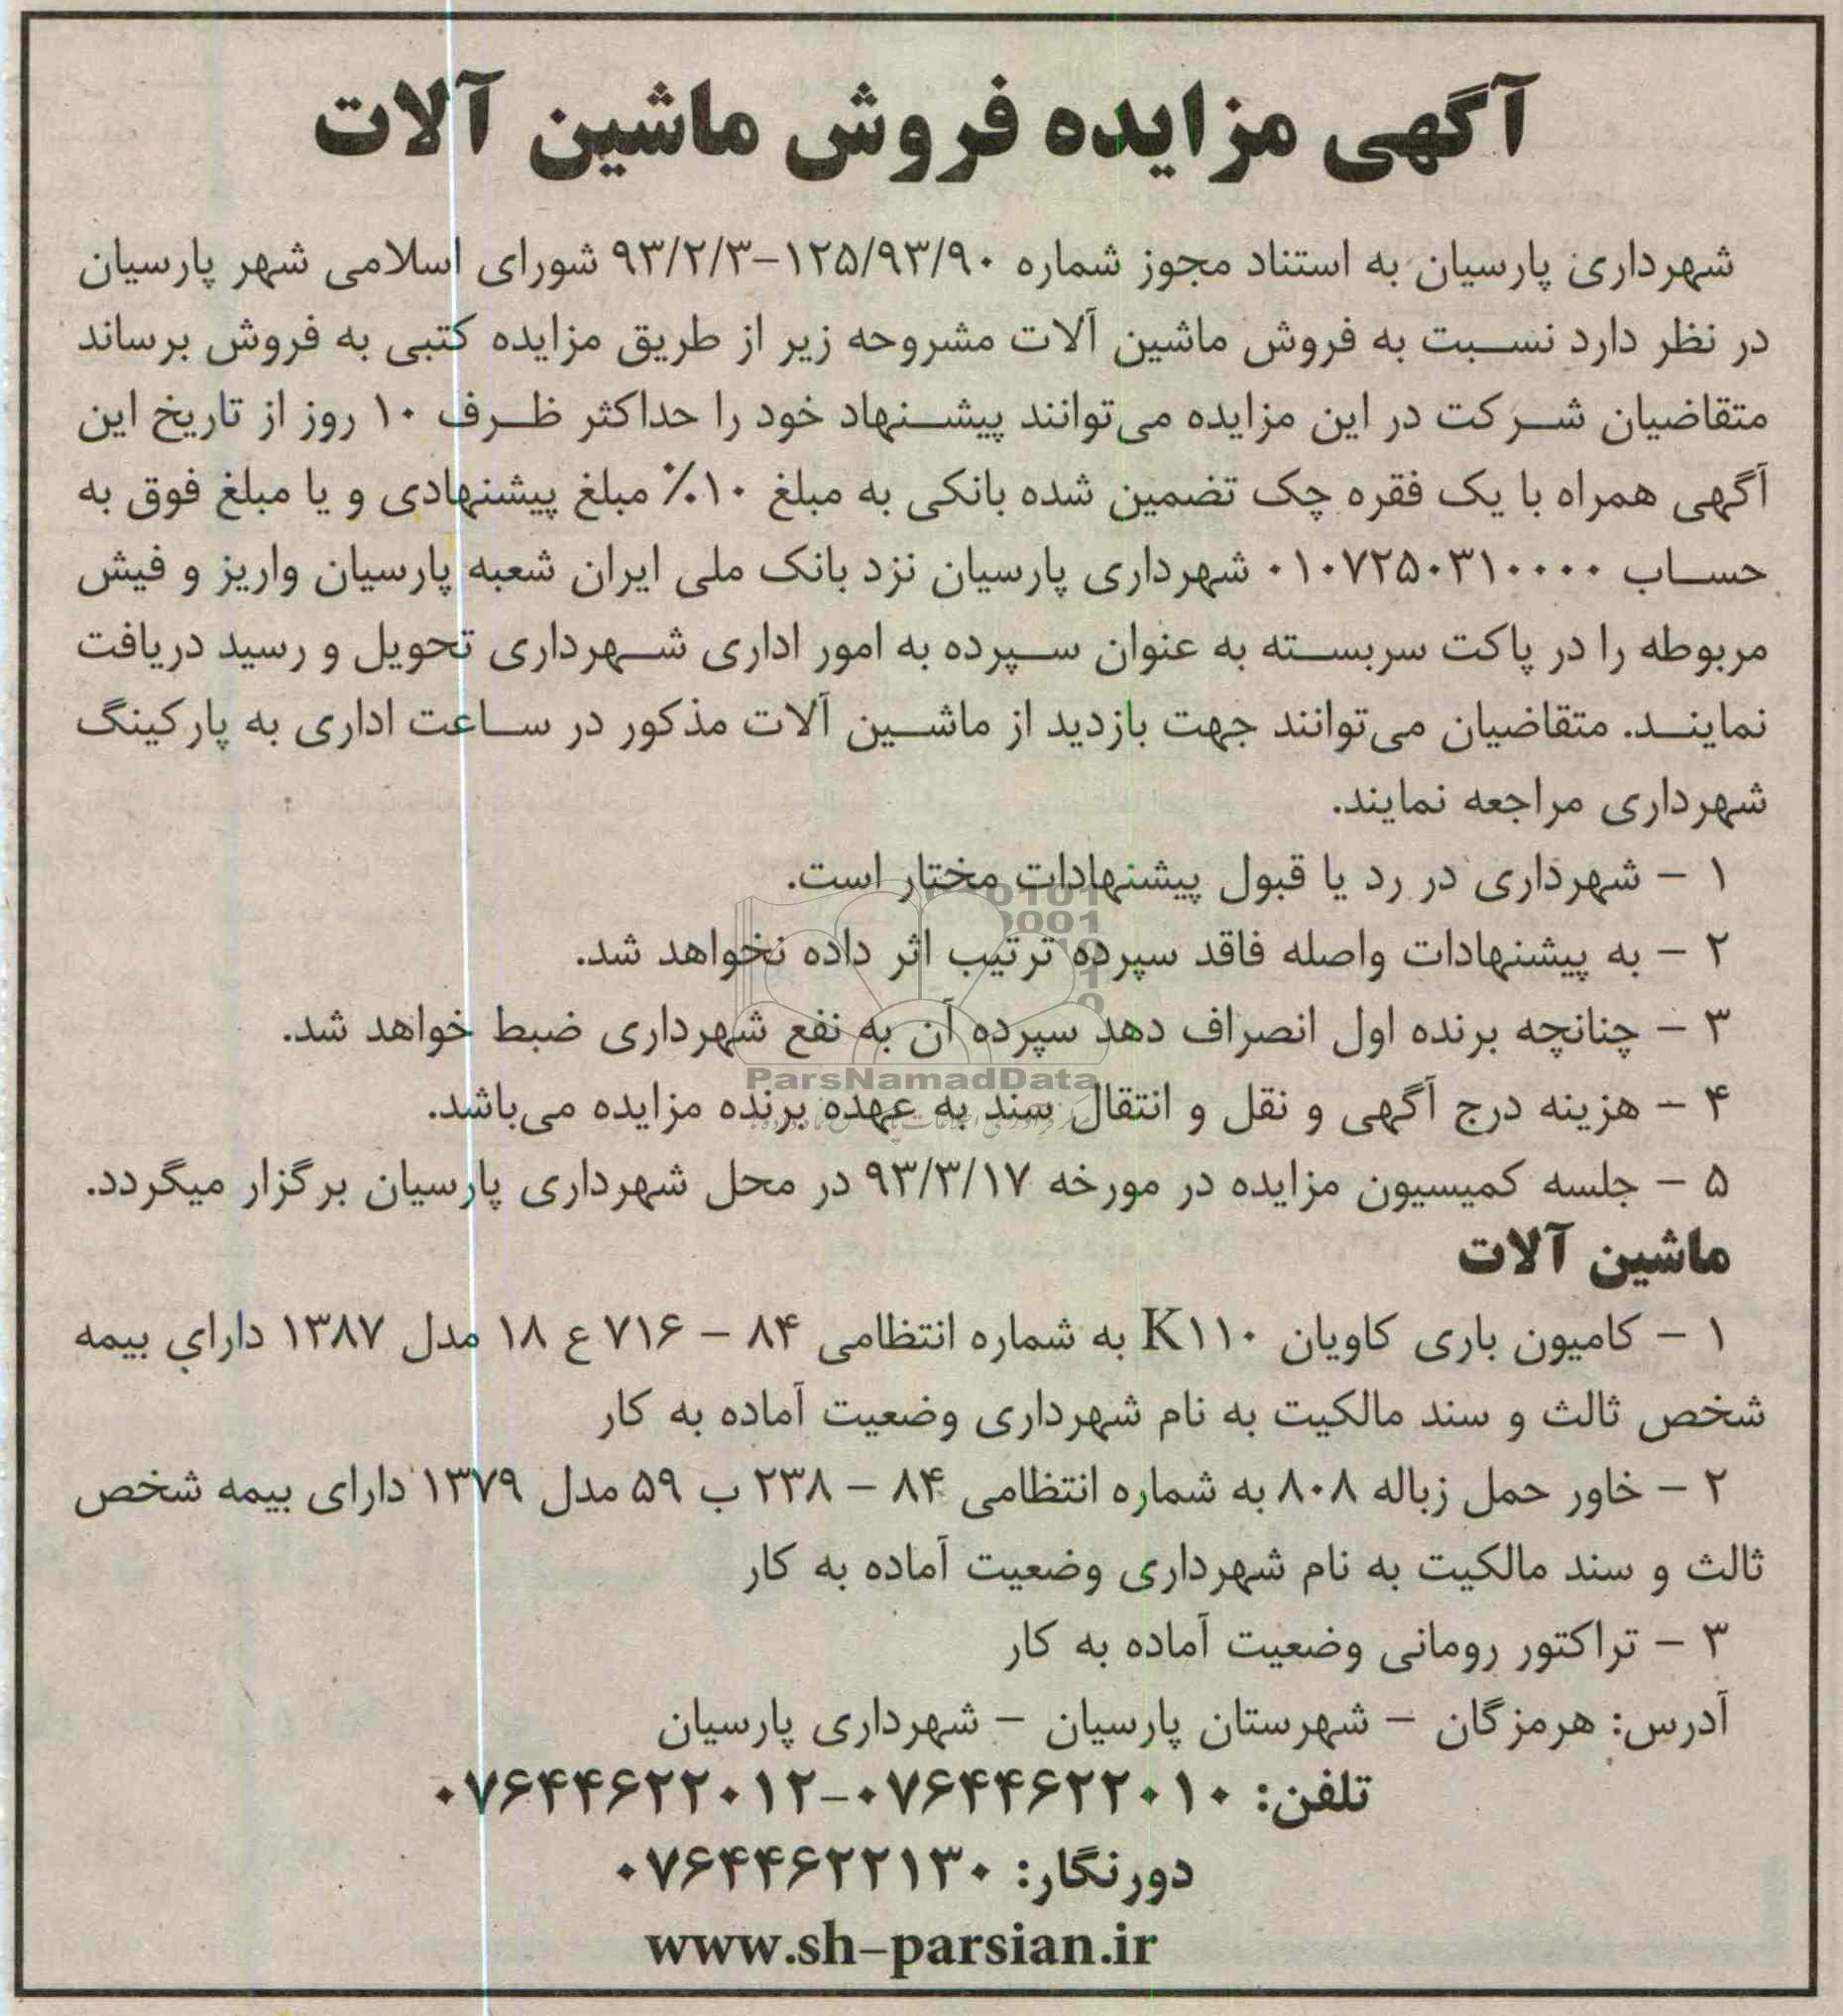 آگهی مزایده فروش ماشین آلات
شهرداری پارسیان به استناد مجوز شماره ۱۲۵/۹۳/۹۰-۹۳/۲/۳ شورای اسلامی شهر پارسیان
در نظر دارد نسبت به فروش ماشین آلات مشروحه زیر از طریق مزایده کتبی به فروش برساند
متقاضیان شرکت در این مزایده می‌توانند پیشنهاد خود را حداکثر ظرف ۱۰ روز از تاریخ این
آگهی همراه با یک فقره چک تضمین شده بانکی به مبلغ ۱۰٪ مبلغ پیشنهادی و یا مبلغ فوق به
حساب ۰۱۰۷۲۵۰۳۱۰۰۰۰ شهرداری پارسیان نزد بانک ملی ایران شعبه پارسیان واریز و فیش
مربوطه را در پاکت سربسته به عنوان سپرده به امور اداری شهرداری تحویل و رسید دریافت
نمایند. متقاضیان می‌توانند جهت بازدید از ماشین آلات مذکور در ساعت اداری به پارکینگ
شهرداری مراجعه نمایند.
۱ - شهرداری در رد یا قبول پیشنهادات مختار است.
۲ - به پیشنهادات واصله فاقد سپرده ترتیب اثر داده نخواهد شد.
۳ - چنانچه برنده اول انصراف دهد سپرده آن به نفع شهرداری ضبط خواهد شد.
ParsNamadData
۴ - هزینه درج آگهی و نقل و انتقال سند به عهده برنده مزایده می‌باشد.
۵ - جلسه کمیسیون مزایده در مورخه ۹۳/۳/۱۷ در محل شهرداری پارسیان برگزار میگردد.
ماشین آلات
۱ - کامیون باری کاویان K۱۱۰ به شماره انتظامی ۸۴ - ۷۱۶ ع ۱۸ مدل ۱۳۸۷ دارای بیمه
شخص ثالث و سند مالکیت به نام شهرداری وضعیت آماده به کار
۲ - خاور حمل زباله ۸۰۸ به شماره انتظامی ۸۴ - ۲۳۸ ب ۵۹ مدل ۱۳۷۹ دارای بیمه شخص
ثالث و سند مالکیت به نام شهرداری وضعیت آماده به کار
۳ - تراکتور رومانی وضعیت آماده به کار
آدرس: هرمزگان - شهرستان پارسیان - شهرداری پارسیان
تلفن: ۰۷۶۴۴۶۲۲۰۱۰-۰۷۶۴۴۶۲۲۰۱۲
دورنگار: ۰۷۶۴۴۶۲۲۱۳۰
www.sh-parsian.ir